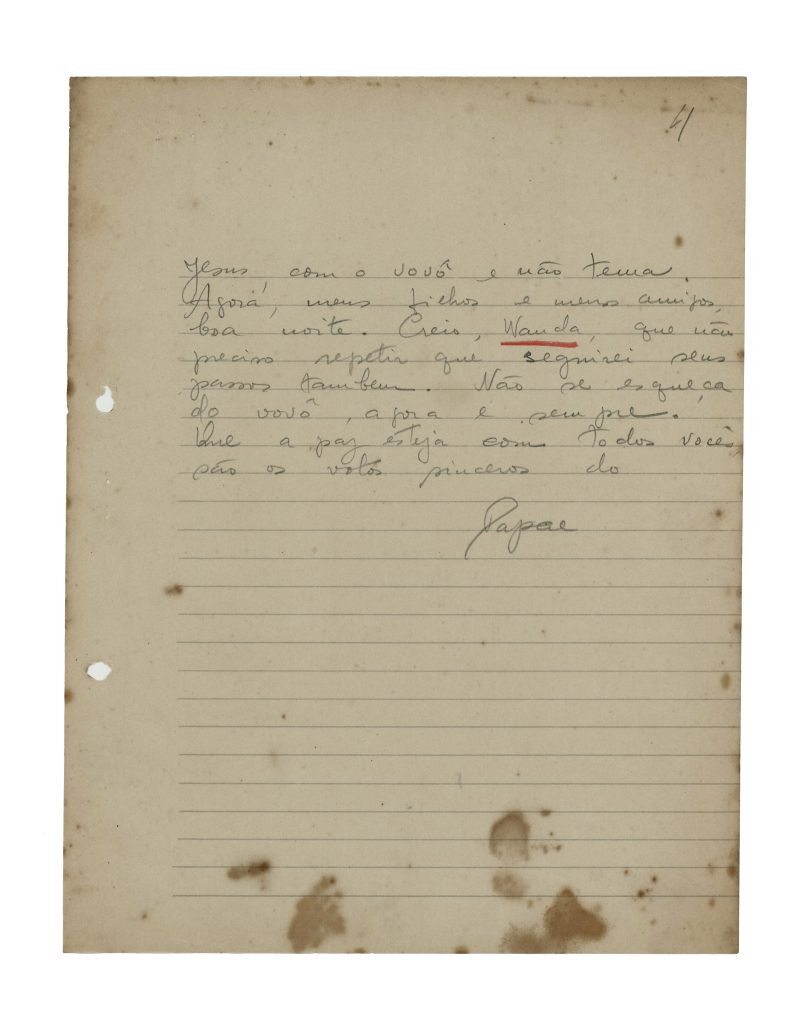 4
Jesus, com o vovô e não tema.
Agora, meus filhos e meus amigos,
boa noite. Creio, Wanda, que não
preciso repetir que seguirei seus
passos tambem. Não se esqueça
do vovô, agora e sempre.
Que a paz esteja com todos vocês
são os votos sinceros do
Papae